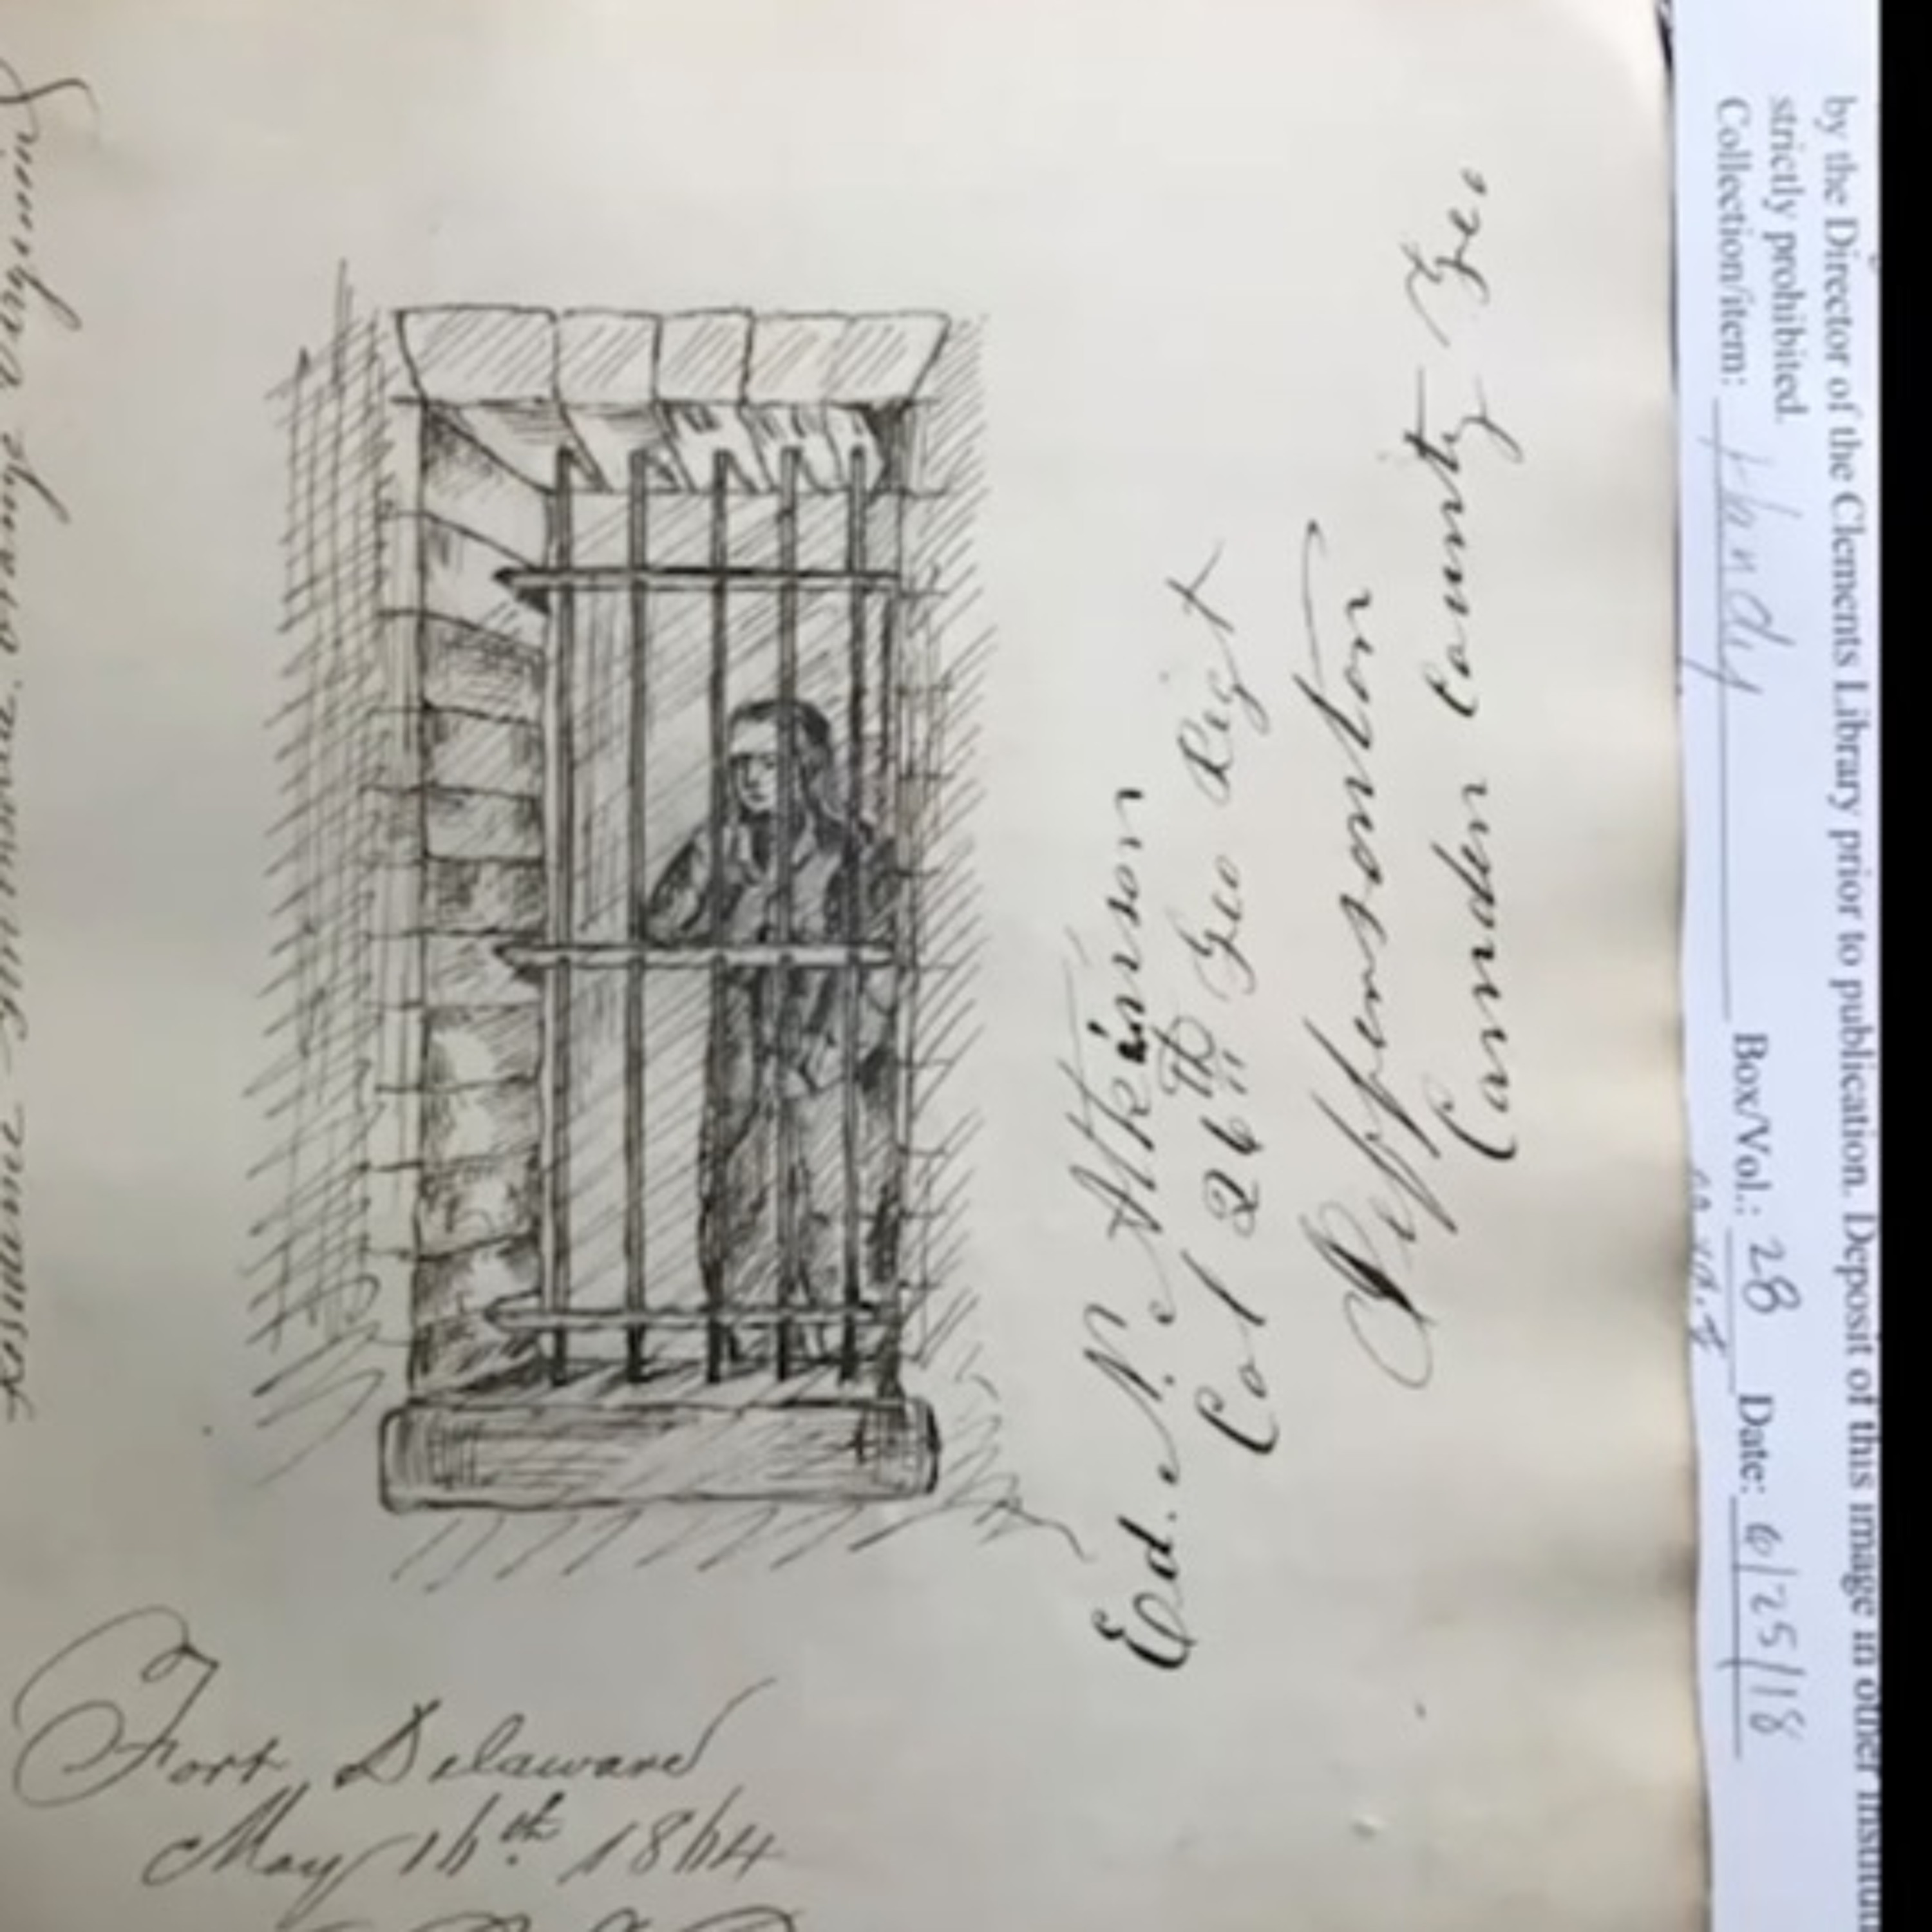 by the Director of the Clements Library prior to publication. Deposit of this image in other
strictly prohibited.
Collection/item: Handy Box/Vol.: 28 Date: 6/25/18
Ed. N. Atkinson
Col 26th Geo Regt
Jeffersonton
Camden County Geo
Fort Delaware
May 16th 1864